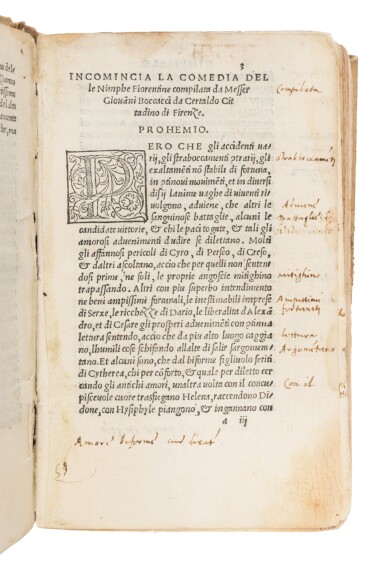 3
INCOMINCIA LA COMEDIA DEL
le Nimphe Fiorentine compilata da Messer
Giouãni Boccacci da Certaldo Cit
tadino di Firenze.
PROHEMIO.
PERO CHE gli accidenti ua-
rij, gli straboccamenti ɔtrarij, gli
exaltamẽti nõ stabili di fortuna,
in ɔtinoui mouimẽti, et in diuersi
disij lanime uaghe di uiuenti ri
uolgono, aduiene, che altri le
sanguinose battaglie, alcuni le
candidate uittorie, & chi le paci togate, & tali gli
amorosi aduenimenti dudire se diletano. Molti
gli affannosi pericoli di Cyro, di Perseo, di Creso,
& daltri ascoltano, accio che per quelli non senten
dosi prime, ne soli, le proprie angoscie mitighino
trapassando. Altri con piu superbo intendimento
ne beni ampissimi fortunali, le inestimabili imprese
di Serxe, le ricchezze di Dario, le liberalita d'Alexã
dro, et di Cesare gli prosperi aduenimẽti con ɔtinua
letura sentendo, accio che da piu alto luogo caggia
no, lhumili cose schifando allalte di salir sargomen-
tano. Et alcuni sono, che dal biforme figliuolo feriti
di Cytherea, chi per cõforto, & quale per diletto cer
cando gli antichi amori, unaltra uolta con il concu
pisceuole cuore trasfugano Helena, raccendono Di-
done, con Hysiphyle piangono, & ingannano con
a iij
Compilata
mitighino
lettura
Con il